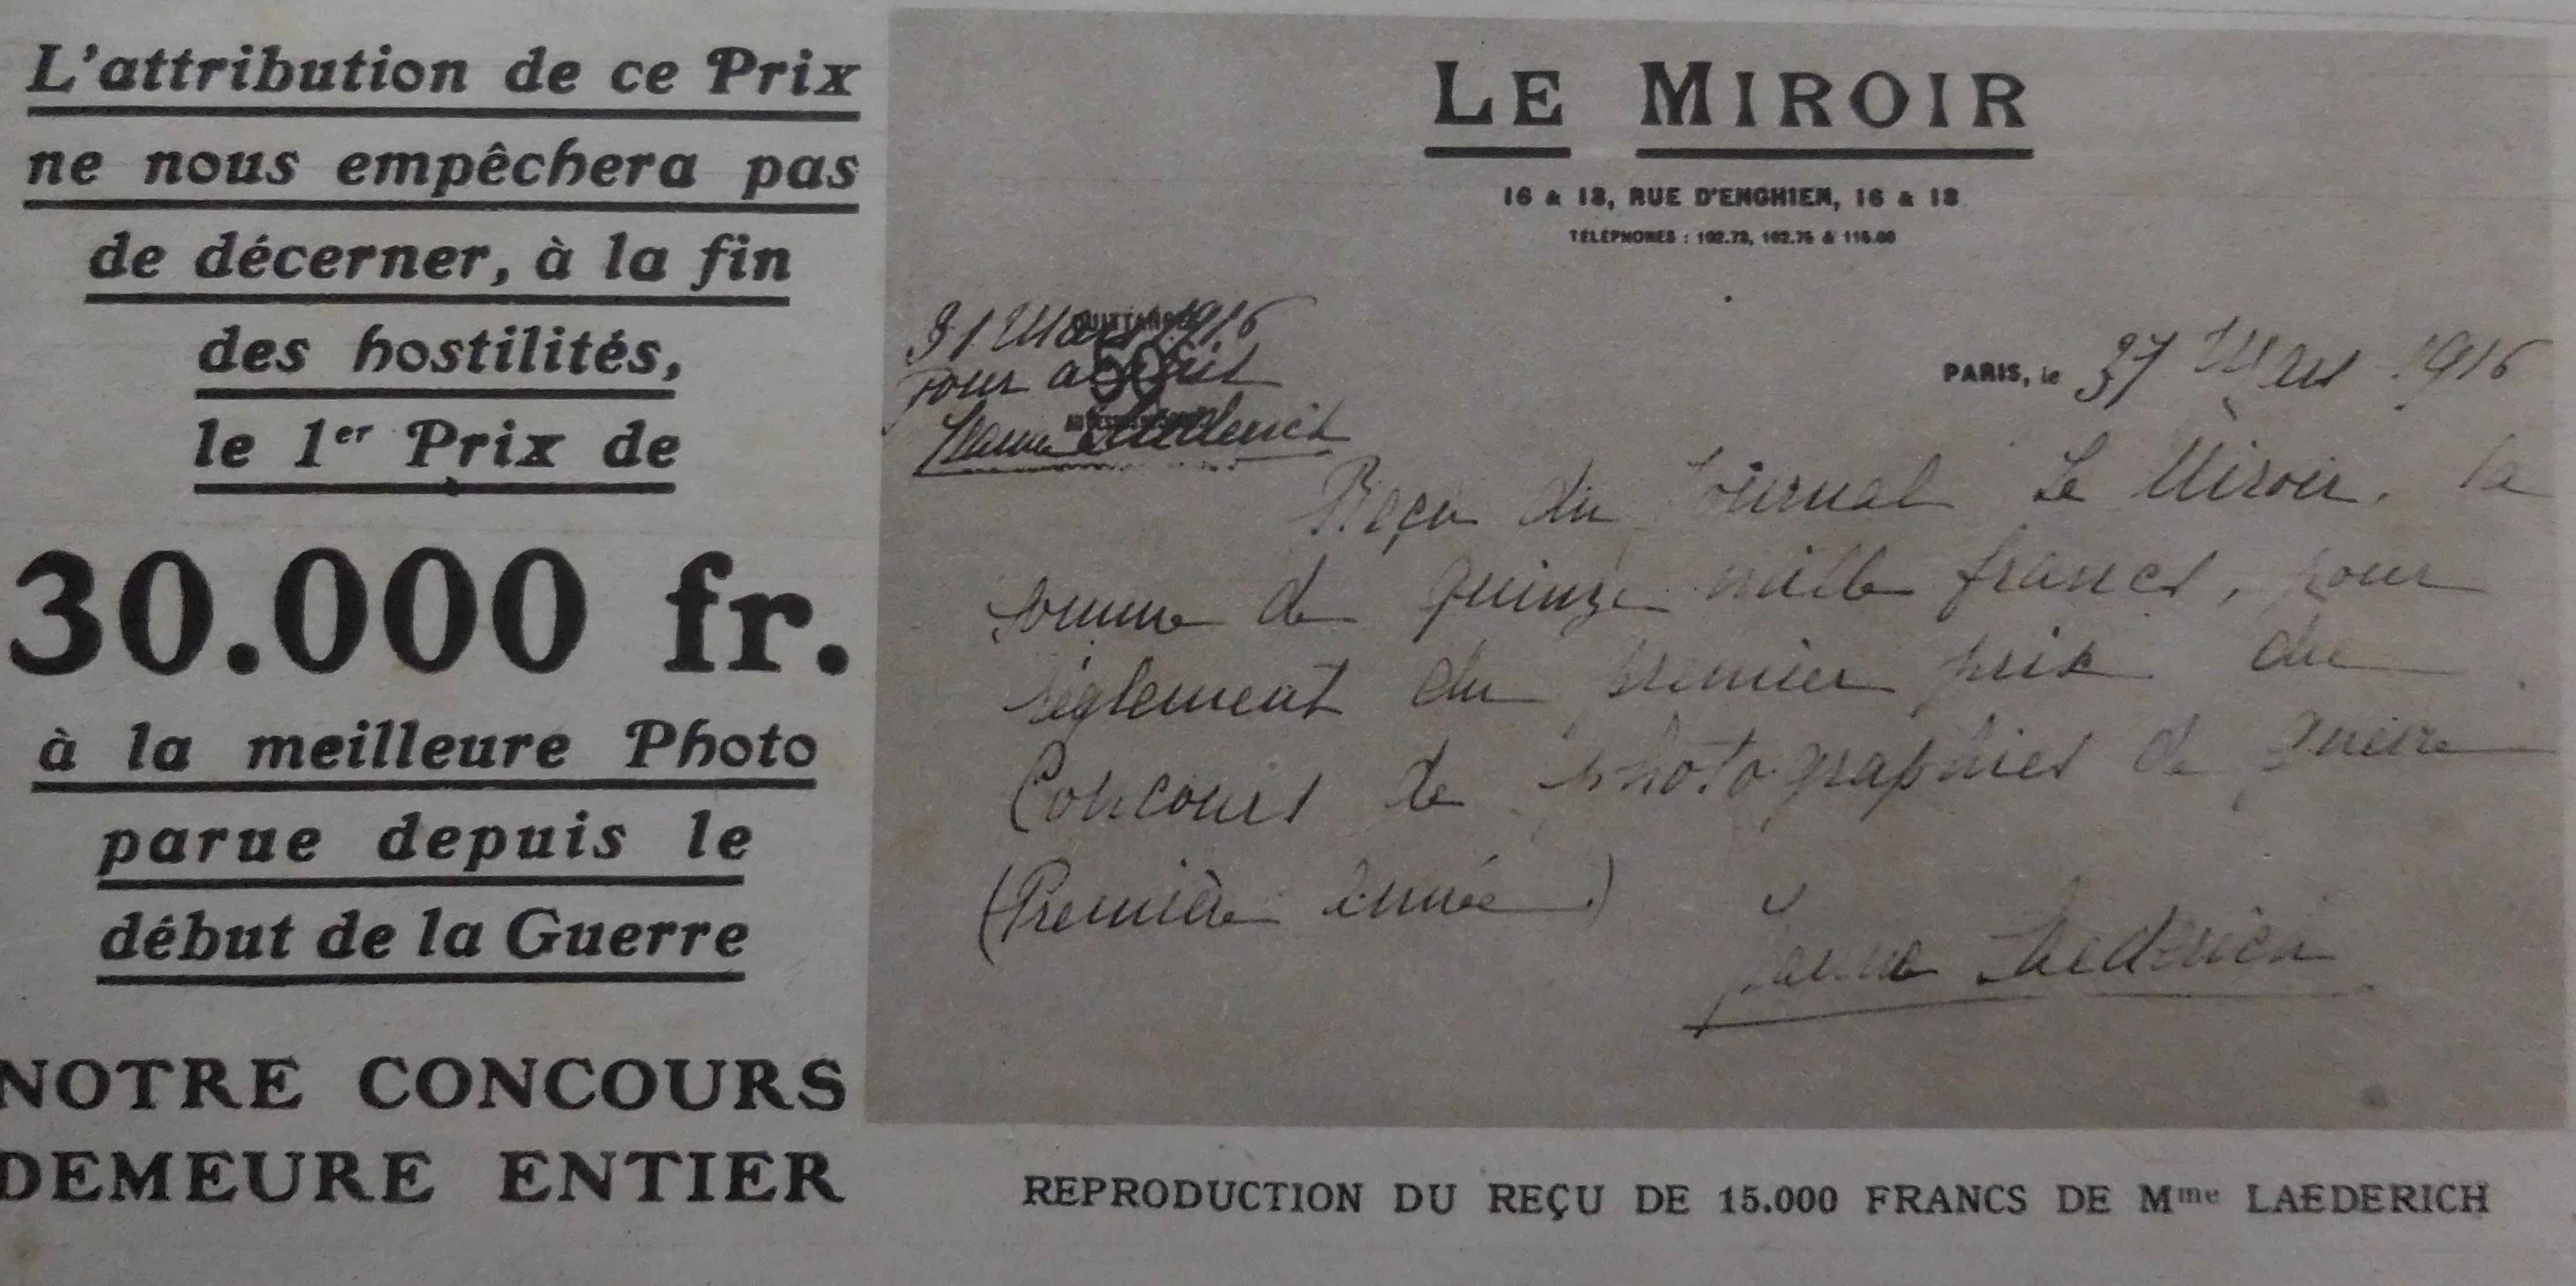 L'attribution de ce Prix
ne nous empêchera pas
de décerner, à la fin
des hostilités,
le 1er Prix de
30.000 fr.
à la meilleure Photo
parue depuis le
début de la Guerre
NOTRE CONCOURS
DEMEURE ENTIER
LE MIROIR
16 & 18, RUE D'ENGHIEN, 16 & 18
TÉLÉPHONES : 102.73, 102.75 & 115.00
31 Mars 1916
Pour acquit
Laederich
PARIS, le Mars 1916
Reçu du Journal Le Miroir, la
somme de quinze mille francs, pour
règlement du premier prix du
Concours de photographies de guerre
(Première année)
Laederich
REPRODUCTION DU REÇU DE 15.000 FRANCS DE Mme LAEDERICH